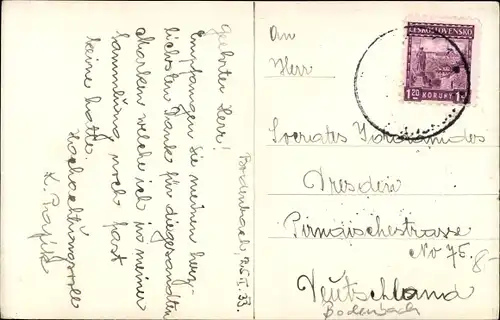 Bodenbach, 25.II.33.
Geehrter Herr!
Empfangen Sie meinen herz-
lichsten Dank für die gesandten
Marken welche ich in meiner
Sammlung noch fast
keine hatte.
Hochachtungsvoll
An
Herr
Socrates
Dresden
Pirnaischestrasse
No 75.
8-
Deutschland
Bodenbach
ČESKOSLOVENSKO
1.20 KORUNY 1.20